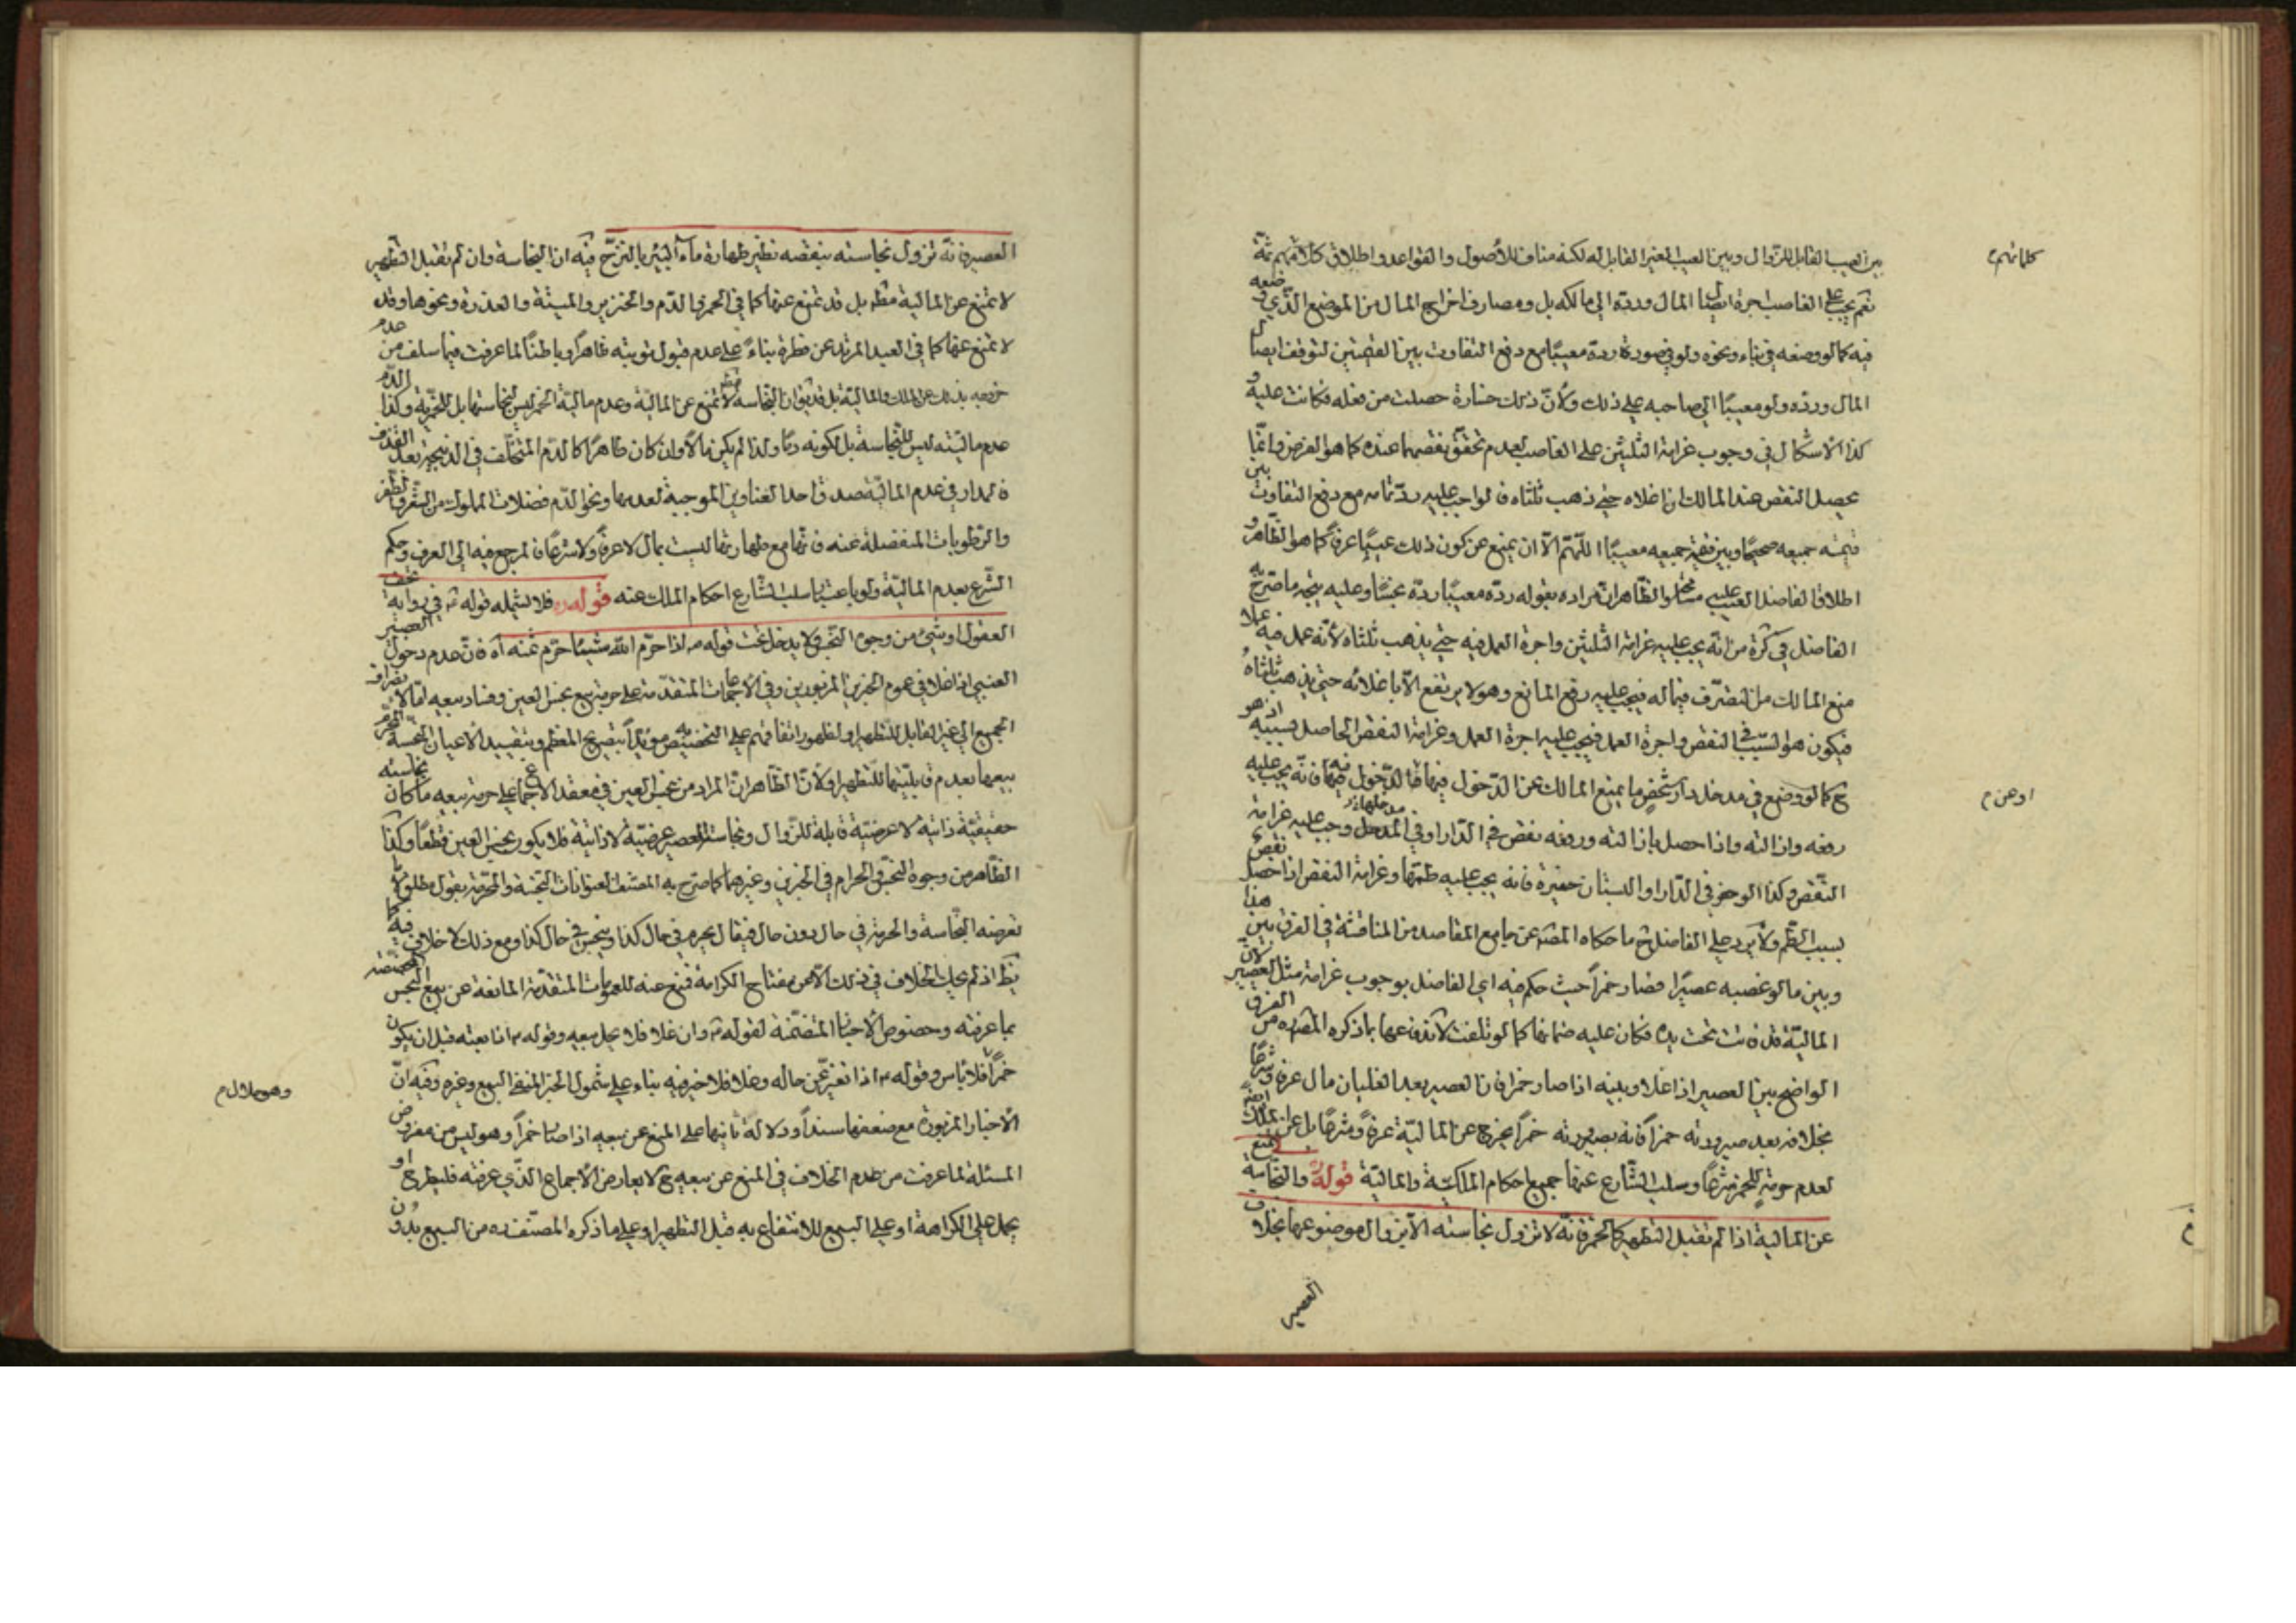 بين العيب القابل للزوال وبين العيب الغير القابل له لكنه مناف للأصول والقواعد واطلاق كلامهم ثمّة
كلماتهم م
نعم يجب على الغاصب اجرة ايصال المال وردّه الى مالكه بل ومصارف اخراج المال من الموضع الذي وضعه
فيه كما لو وضعه في بناء ونحوه ولو في صورة ردّه معيبًا مع دفع التفاوت بين القيمتين لتوقف ايصال
المال وردّه ولو معيبًا الى صاحبه على ذلك ولأنّ ذلك خسارة حصلت من فعله فكانت عليه و
كذا الاشكال في وجوب غرامة الثلثين على الغاصب لعدم تحقق نقصهما عنده كما هو الفرض وانّما
يحصل النقص عند المالك ان اغلاه حتى ذهب ثلثاه فالواجب عليه ردّ تمامه مع دفع التفاوت بين
قيمته جميعه صحيحًا وبين قيمة جميعه معيبًا اللّهمّ الاّ ان يمنع عن كون ذلك عيبًا عرفًا كما هو الظّاهر و
اطلاق الفاضل العيب عليه والظّاهر انّ مراده بقوله ردّه معيبًا ردّه نجسًا وعليه يتّجه ما صرّح به
الفاضل في كره من انّه يجب عليه غرامة الثلثين واجرة العمل فيه حتى يذهب ثلثاه لأنّه عمل فيه عملا
منع المالك من التصرّف في ماله فيجب عليه رفع المانع وهو لا يرتفع الاّ باغلائه حتى يذهب ثلثاه
فيكون هو السّبب في النقص واجرة العمل فيجب عليه اجرة العمل وغرامة النقص الحاصل بسببه اذ هو
ح كما لو وضع في مدخل دار شخص ما يمنع المالك عن الدّخول فيها فانّه يجب عليه
او عن م
رفعه وازالته واذا حصل بازالته ورفعه نقص في الدّار او في المدخل وجب عليه غرامة
النّقص وكذا لو حفر في الدّار او البستان حفيرة فانه يجب عليه طمّها وغرامة النقص اذا حصل نقص
بسبب الطّم ولا يرد على الفاضل ح ما حكاه المصنف عن جامع المقاصد من المناقشة في الفرق بين هذا
وبين ما لو غصبه عصيرًا فصار خمرًا حيث حكم فيه اي الفاضل بوجوب غرامة مثل العصير لانّ
الماليّة قد فاتت تحت يده فكان عليه ضمانها كما لو تلفت لاندفاعها بما ذكره المصنف ره من الفرق
الواضح بين العصير اذا غلا وبينه اذا صار خمرا فان العصير بعد الغليان مال عرفا وشرعًا
بخلافه بعد صيرورته خمرًا فانه بصيرورته خمرًا يخرج عن الماليّة عرفًا وشرعًا بل عن الملك ايضا
لعدم حرمة للخمر شرعًا وسلب الشّارع عنها جميع احكام الملكيّة والماليّة قوله والنّجاسة تمنع
عن المالية اذا لم تقبل التطهير كالخمر فانّه لا تزول نجاسته الاّ بزوال موضوعها بخلاف
العصير
العصير فانّه تزول نجاسته بنقصه نظير طهارة ماء البئر بالنّزح فيه ان النجاسة وان لم تقبل التّطهير
لا تمنع عن المالية مط بل قد تمنع عنها كما في الخمر والدّم والخنزير والميتة والعذرة ونحوها وقد
لا تمنع عنها كما في العبد المرتد عن فطرة بناءً على عدم قبول توبته ظاهرًا وباطنًا لما عرفت فيما سلف من عدم
خروجه بذلك عن الملك والماليّة بل قد يق ان النّجاسة لا تمنع عن الماليّة وعدم مالية الخمر ليس لنجاستها بل للخمريّة وكذا الدّم
عدم ماليّته ليس للنّجاسة بل لكونه دمًا ولذا لم يكن مالاً وان كان طاهرًا كالدّم المتخلّف في الذبيحة بعد القذف
فالمدار في عدم الماليّة صدق احد العناوين الموجبة لعدمها ونحو الدّم فضلات المملوك من الشّعر والظّفر
والرّطوبات المنفصلة عنه فانّها مع طهارتها ليست بمال لا عرفًا ولا شرعًا فالمرجع فيه الى العرف وحكم
الشّرع بعدم الماليّة ولو باعتبار سلب الشّارع احكام الملك عنه قوله فلا يشمله قوله في رواية تحف
العقول او شيء من وجوه النّجس ولا يدخل تحت قوله اذا حرّم الله شيئا حرّم ثمنه آه فانّ عدم دخول العصير
العنبي اذا غلا في عموم الخبرين المزبورين وفي الاجماعات المتقدّمة على حرمة بيع نجس العين وفساد بيعه امّا لانصراف
الجميع الى غير القابل للتطهير او لظهور اتفاقهم على التخصيص به مؤيّدًا بتصريح المعظم وبتقييد الاعيان النّجسة المحرّم
بيعها بعدم قابليّتها للتّطهير او لأنّ الظّاهر انّ المراد من نجس العين في معقد الاجماع على حرمة بيعه ما كان نجاسته
حقيقيّة ذاتية لا عرضيّة قابلة للزّوال ونجاسة العصير عرضيّة لا ذاتية فلا يكون نجس العين قطعًا وكذا
الظّاهر من وجوه النّجس والحرام في الخبرين وغيرهما كما صرّح به المصنف العنوانات النّجسة والمحرّمة بقول مطلق لا ما
تعرضه النّجاسة والحرمة في حال دون حال فيقال يحرم في حال كذا وينجس في حال كذا ومع ذلك لا خلاف فيه كما
يظ اذ لم يحك الخلاف في ذلك الاّ عن مفتاح الكرامة فمنع عنه للعمومات المتقدّمة المانعة عن بيع النّجس
بما عرفته وخصوص الأخبار المتضمّنة لقوله وان غلا فلا يحل بيعه وقوله اذا بعته قبل ان يكون
خمرًا فلا باس وقوله اذا تغيّر عن حاله وغلا فلا خير فيه بناء على شمول الخير المنفيّ البيع وغيره وفيه انّ
وهو حلال م
الأخبار المزبورة مع ضعفها سندًا ودلالة ثانيها على المنع عن بيعه اذا صار خمرًا وهو ليس من مفروض
المسئلة لما عرفت من عدم الخلاف في المنع عن بيعه ح لا يعارض الأجماع الذّي عرفته فليطرح او
يحمل على الكراهة او على البيع للانتفاع به قبل التطهير او على ما ذكره المصنّف ره من البيع بدون